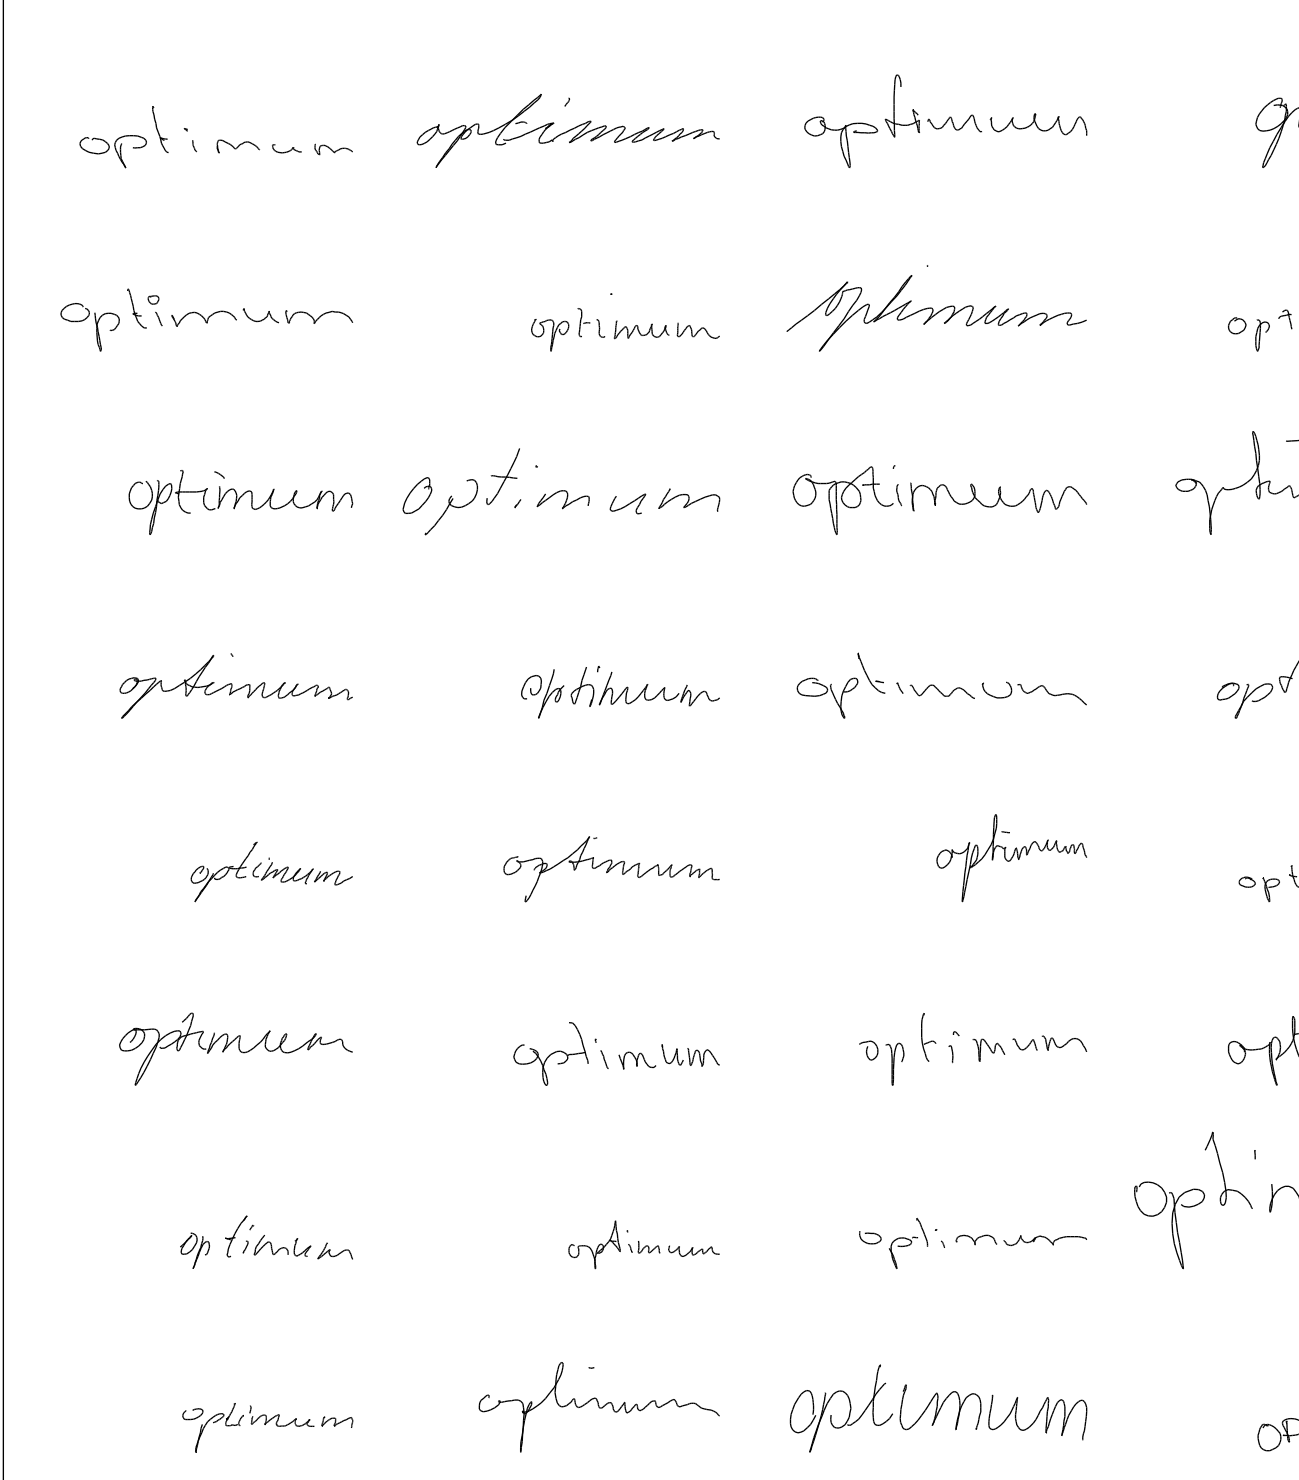 optimum optimum optimum op
optimum optimum optimum opt
optimum optimum optimum opti
optimum optimum optimum opt
optimum optimum optimum opt
optimum optimum optimum opt
optimum optimum optimum optin
optimum optimum optimum op